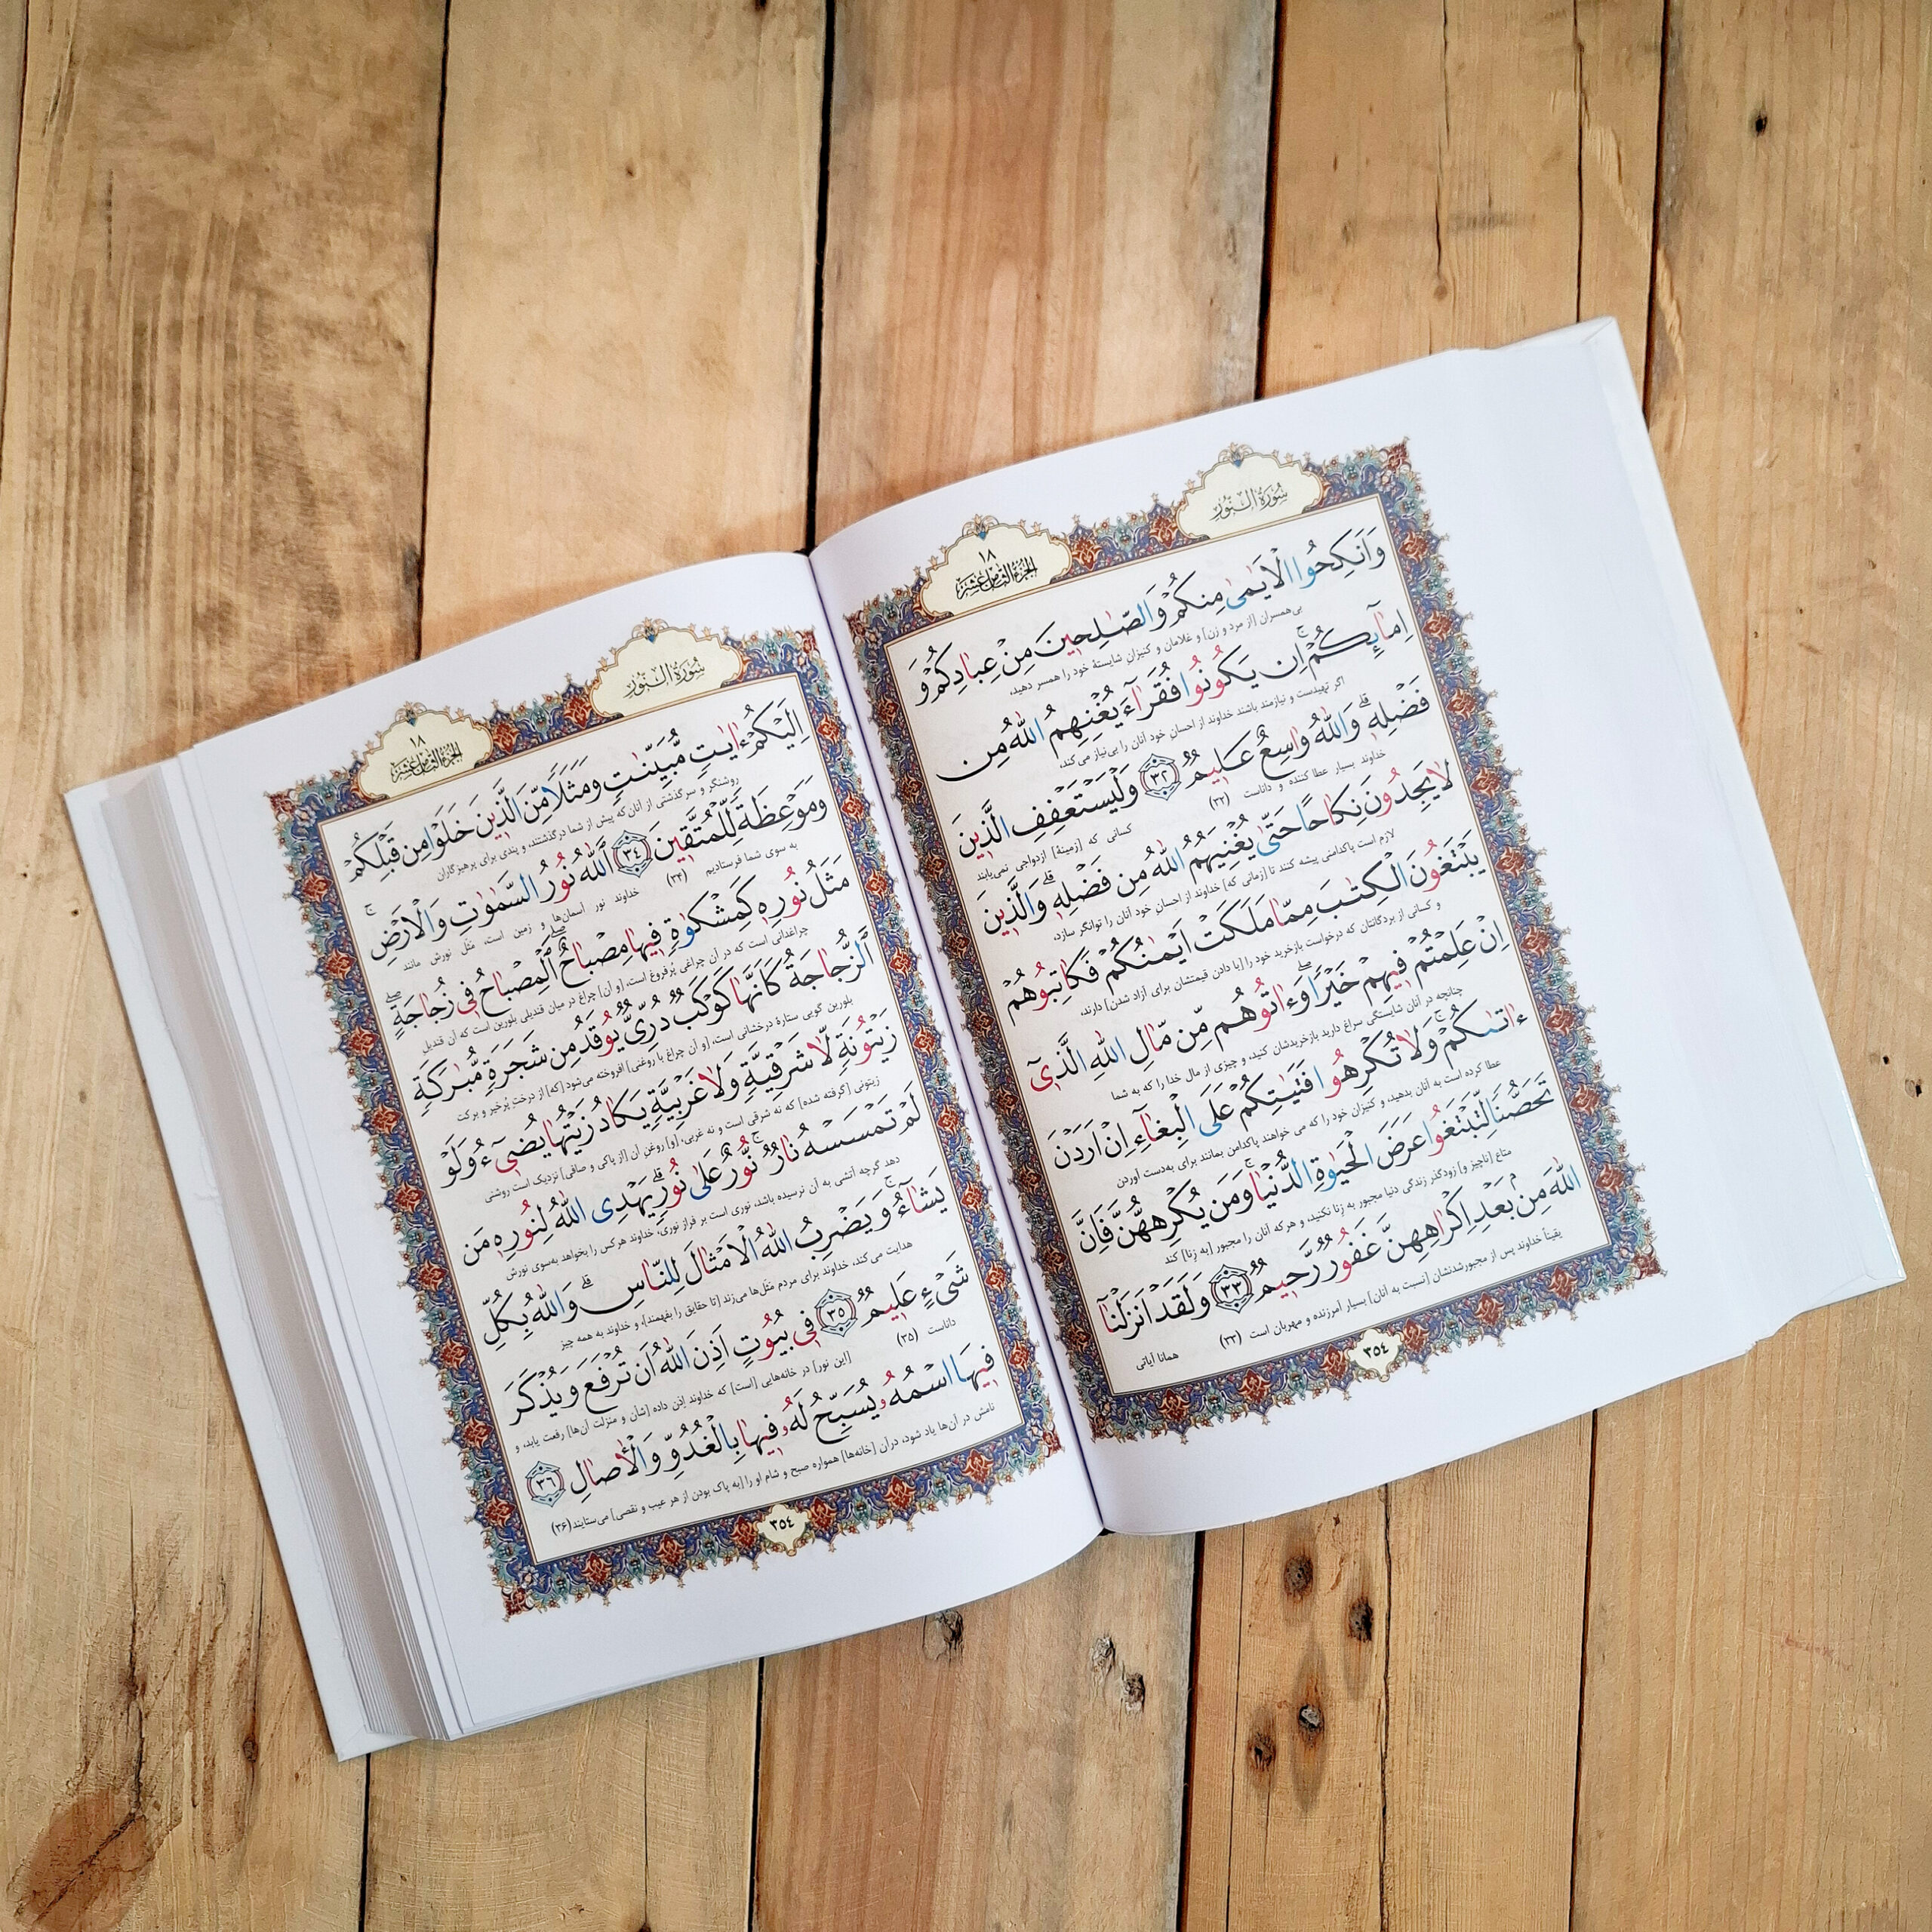 سُورَةُ النُّورِ
١٨
الجُزءُ الثّامِنُ عَشَر
وَاَنكِحُوا الْاَيٰمىٰ مِنكُمْ وَالصّٰلِحينَ مِنْ عِبادِكُمْ وَ
بی‌همسران [از مرد و زن] و غلامان و کنیزانِ شایستهٔ خود را همسر دهید،
اِمآئِكُمْ ۚ اِن يَكونوا فُقَرآءَ يُغْنِهِمُ اللّٰهُ مِن
اگر تهیدست و نیازمند باشند خداوند از احسانِ خود آنان را بی‌نیاز می‌کند،
فَضْلِهٖ ۗ وَاللّٰهُ واسِعٌ عَليمٌ ٣٢ وَلْيَسْتَعْفِفِ الَّذينَ
خداوند بسیار عطا کننده و داناست (۳۲) کسانی که [زمینهٔ] ازدواجی نمی‌یابند
لا يَجِدونَ نِكاحًا حَتّىٰ يُغْنِيَهُمُ اللّٰهُ مِن فَضْلِهٖ ۗ وَالَّذينَ
لازم است پاکدامنی پیشه کنند تا [زمانی که] خداوند از احسانِ خود آنان را توانگر سازد،
يَبْتَغونَ الْكِتٰبَ مِمّا مَلَكَتْ اَيْمٰنُكُمْ فَكاتِبوهُمْ
و کسانی از بردگانتان که درخواست بازخرید خود را [با دادن قیمتشان برای آزاد شدن] دارند،
اِنْ عَلِمْتُمْ فيهِمْ خَيْرًا ۖ وَءاتوهُم مِّن مّالِ اللّٰهِ الَّذىٓ
چنانچه در آنان شایستگی سراغ دارید بازخریدشان کنید، و چیزی از مال خدا را که به شما
ءاتىٰكُمْ ۚ وَلا تُكْرِهوا فَتَيٰتِكُمْ عَلَى الْبِغآءِ اِنْ اَرَدْنَ
عطا کرده است به آنان بدهید، و کنیزان خود را که می خواهند پاکدامن بمانند برای به‌دست آوردن
تَحَصُّنًا لِّتَبْتَغوا عَرَضَ الْحَيٰوةِ الدُّنْيا ۚ وَمَن يُكْرِههُّنَّ فَاِنَّ
متاع [ناچیز و] زودگذر زندگی دنیا مجبور به زنا نکنید، و هرکه آنان را مجبور [به زنا] کند
اللّٰهَ مِن بَعْدِ اِكْرٰهِهِنَّ غَفورٌ رَّحيمٌ ٣٣ وَلَقَدْ اَنزَلْنآ
یقیناً خداوند پس از مجبورشدنشان [نسبت به آنان] بسیار آمرزنده و مهربان است (۳۳) همانا آیاتی
٣٥٤
سُورَةُ النُّورِ
١٨
الجُزءُ الثّامِنُ عَشَر
اِلَيْكُمْ ءايٰتٍ مُّبَيِّنٰتٍ وَمَثَلًا مِّنَ الَّذينَ خَلَوْا مِن قَبْلِكُمْ
روشنگر و سرگذشتی از آنان که پیش از شما درگذشتند، و پندی برای پرهیزگاران
وَمَوْعِظَةً لِّلْمُتَّقينَ ٣٤ اَللّٰهُ نورُ السَّمٰوٰتِ وَالْاَرْضِ ۚ
به سوی شما فرستادیم (۳۴) خداوند نور آسمان‌ها و زمین است، مَثَل نورش مانند
مَثَلُ نورِهٖ كَمِشْكٰوةٍ فيها مِصْباحٌ ۖ اَلْمِصْباحُ فى زُجاجَةٍ ۖ
چراغدانی است که در آن چراغی پُرفروغ است، [و آن] چراغ در میان قندیلی بلورین است که آن قندیلِ
اَلزُّجاجَةُ كَاَنَّها كَوْكَبٌ دُرِّىٌّ يوقَدُ مِن شَجَرَةٍ مُّبٰرَكَةٍ
بلورین گویی ستارهٔ درخشانی است، [و آن چراغ با روغنی] افروخته می‌شود [که] از درختِ پُرخیر و برکت
زَيْتونَةٍ لّا شَرْقِيَّةٍ وَلا غَرْبِيَّةٍ يَكادُ زَيْتُها يُضىٓءُ وَلَوْ
زیتونی [گرفته شده] که نه شرقی است و نه غربی، [و] روغنِ آن [از پاکی و صافی] نزدیک است روشنی
لَمْ تَمْسَسْهُ نارٌ ۚ نّورٌ عَلىٰ نورٍ ۗ يَهْدِى اللّٰهُ لِنورِهٖ مَن
دهد گرچه آتشی به آن نرسیده باشد، نوری است بر فراز نوری؛ خداوند هرکس را بخواهد به‌سوی نورش
يَشآءُ ۚ وَيَضْرِبُ اللّٰهُ الْاَمْثالَ لِلنّاسِ ۗ وَاللّٰهُ بِكُلِّ
هدایت می‌کند، خداوند برای مردم مَثَل‌ها می‌زند [تا حقایق را بفهمند]، و خداوند به همه چیز
شَىْءٍ عَليمٌ ٣٥ فى بُيوتٍ اَذِنَ اللّٰهُ اَن تُرْفَعَ وَيُذْكَرَ
داناست (۳۵) [این نور] در خانه‌هایی [است] که خداوند اِذن داده [شأن و منزلت آن‌ها] رفعت یابد، و
فيهَا اسْمُهٗ يُسَبِّحُ لَهٗ فيها بِالْغُدُوِّ وَالْأصالِ ٣٦
نامش در آن‌ها یاد شود، درآن [خانه‌ها] همواره صبح و شام او را [به پاک بودن از هر عیب و نقصی] می‌ستایند (۳۶)
٣٥٤